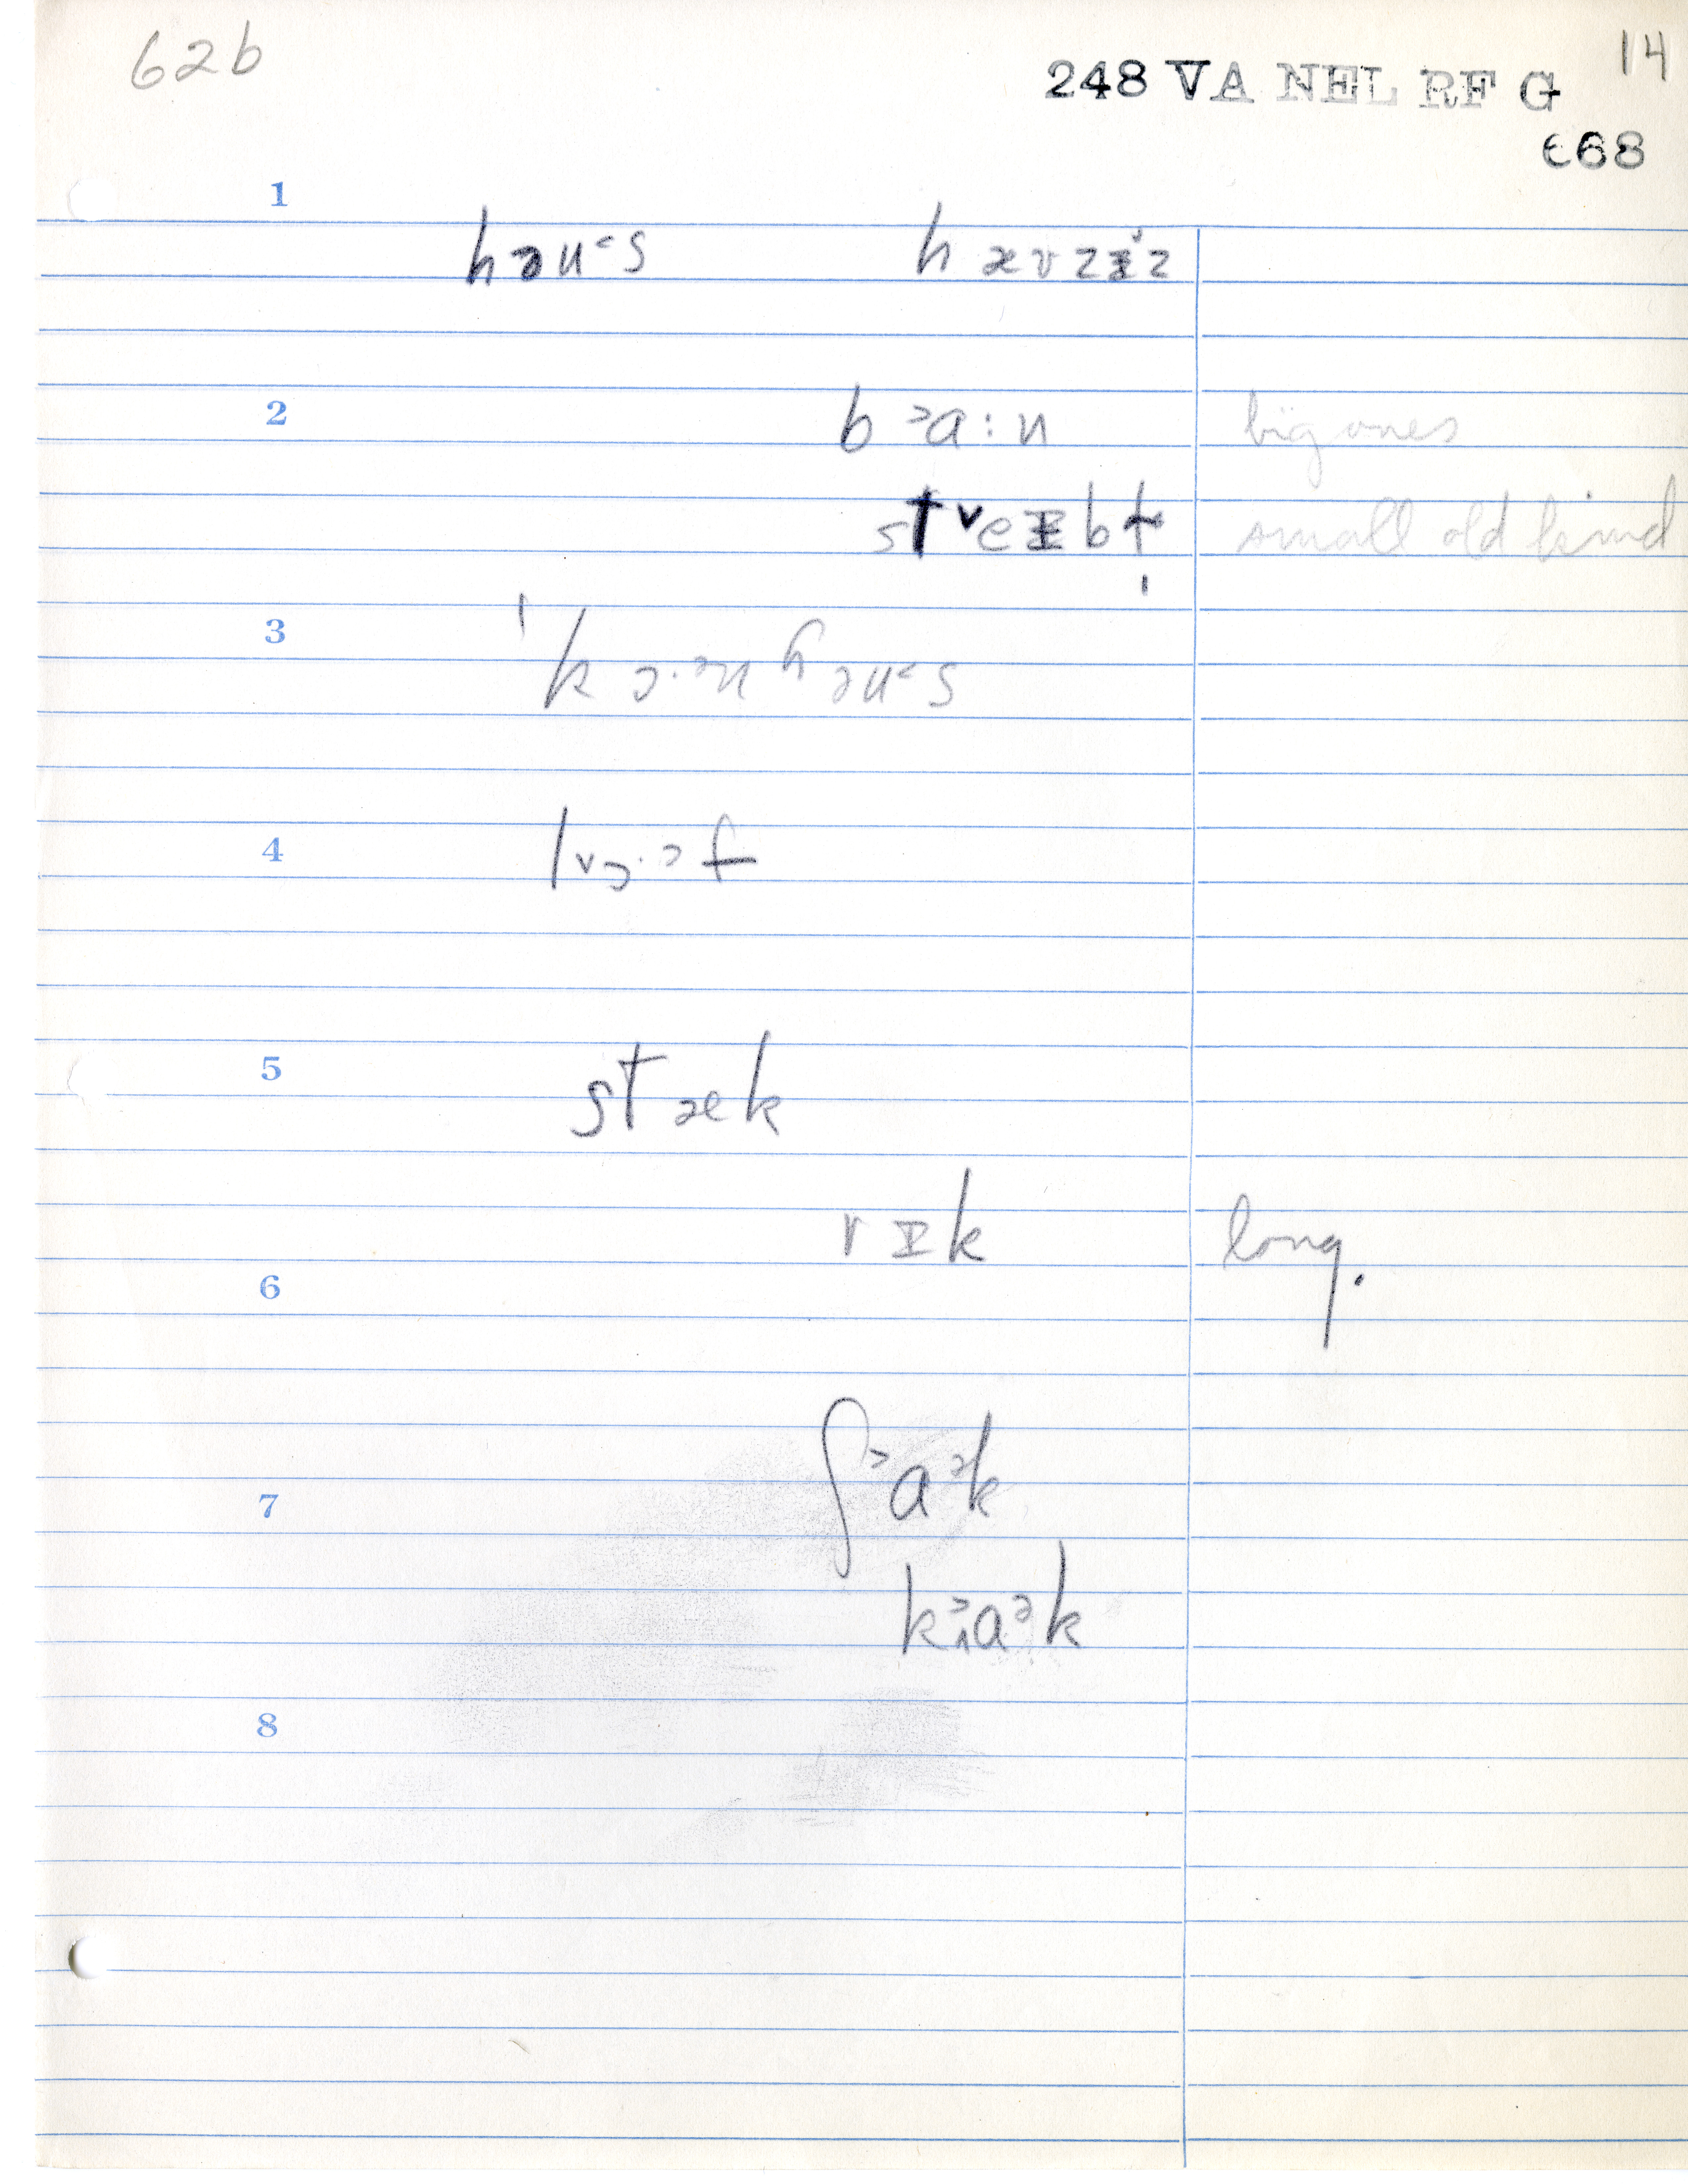 62b
14
248 VA NEL RF G
t68
1
həu˂s hæʊzɪz
2
b˃a:n big ones
st˅eɪbɫ̩ small old kind
3
ˈkɔ·ɚnhəu˂s
4
l˅ɔ·ᵊf
5
stæk
rɪk long.
6
ʃ˃aᵊk
7
k˃aᵊk
8